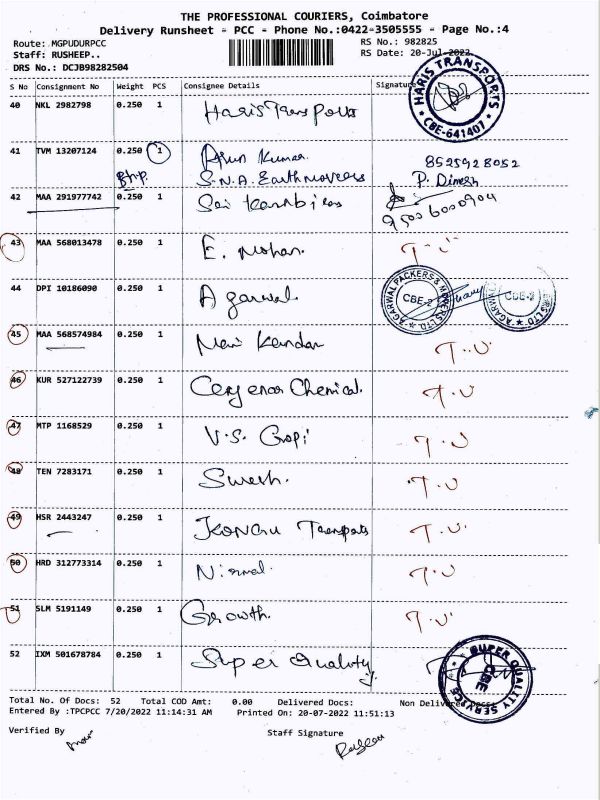 THE PROFESSIONAL COURIERS, Coimbatore
Delivery Runsheet - PCC - Phone No.:0422-3505555 - Page No.:4
Route: MGPUDURPCC RS No.: 982825
Staff: RUSHEEP.. RS Date: 20-Jul-2022
DRS No.: DCJB98282504
S No Consignment No Weight PCS Consignee Details Signature
HARIS TRANSPORTS
CBE-641407
40 NKL 2982798 0.250 1 Haris Transports
41 TVM 13207124 0.250 1 Arun Kumar 8525928052
S.N.A. Earthmovers P. Dinesh
42 MAA 291977742 0.250 1 Sai 95006000904
43 MAA 568013478 0.250 1 E. Mohan. T.U
44 DPI 10186090 0.250 1 Agarwal
AGARWAL PACKERS & MOVERS LTD.
CBE-2
CBE-2
45 MAA 568574984 0.250 1 T.U
46 KUR 527122739 0.250 1 Chemical. T.U
47 MTP 1168529 0.250 1 V.S. Gopi T.U
48 TEN 7283171 0.250 1 T.U
49 HSR 2443247 0.250 1 Kongu Transports T.U
50 HRD 312773314 0.250 1 Nirmal T.U
51 SLM 5191149 0.250 1 Growth. T.U
52 IXM 501678784 0.250 1 Super Quality
SUPER QUALITY SERVICE
CBE
Total No. Of Docs: 52 Total COD Amt: 0.00 Delivered Docs: Non Delivered Docs:
Entered By :TPCPCC 7/20/2022 11:14:31 AM Printed On: 20-07-2022 11:51:13
Verified By Staff Signature